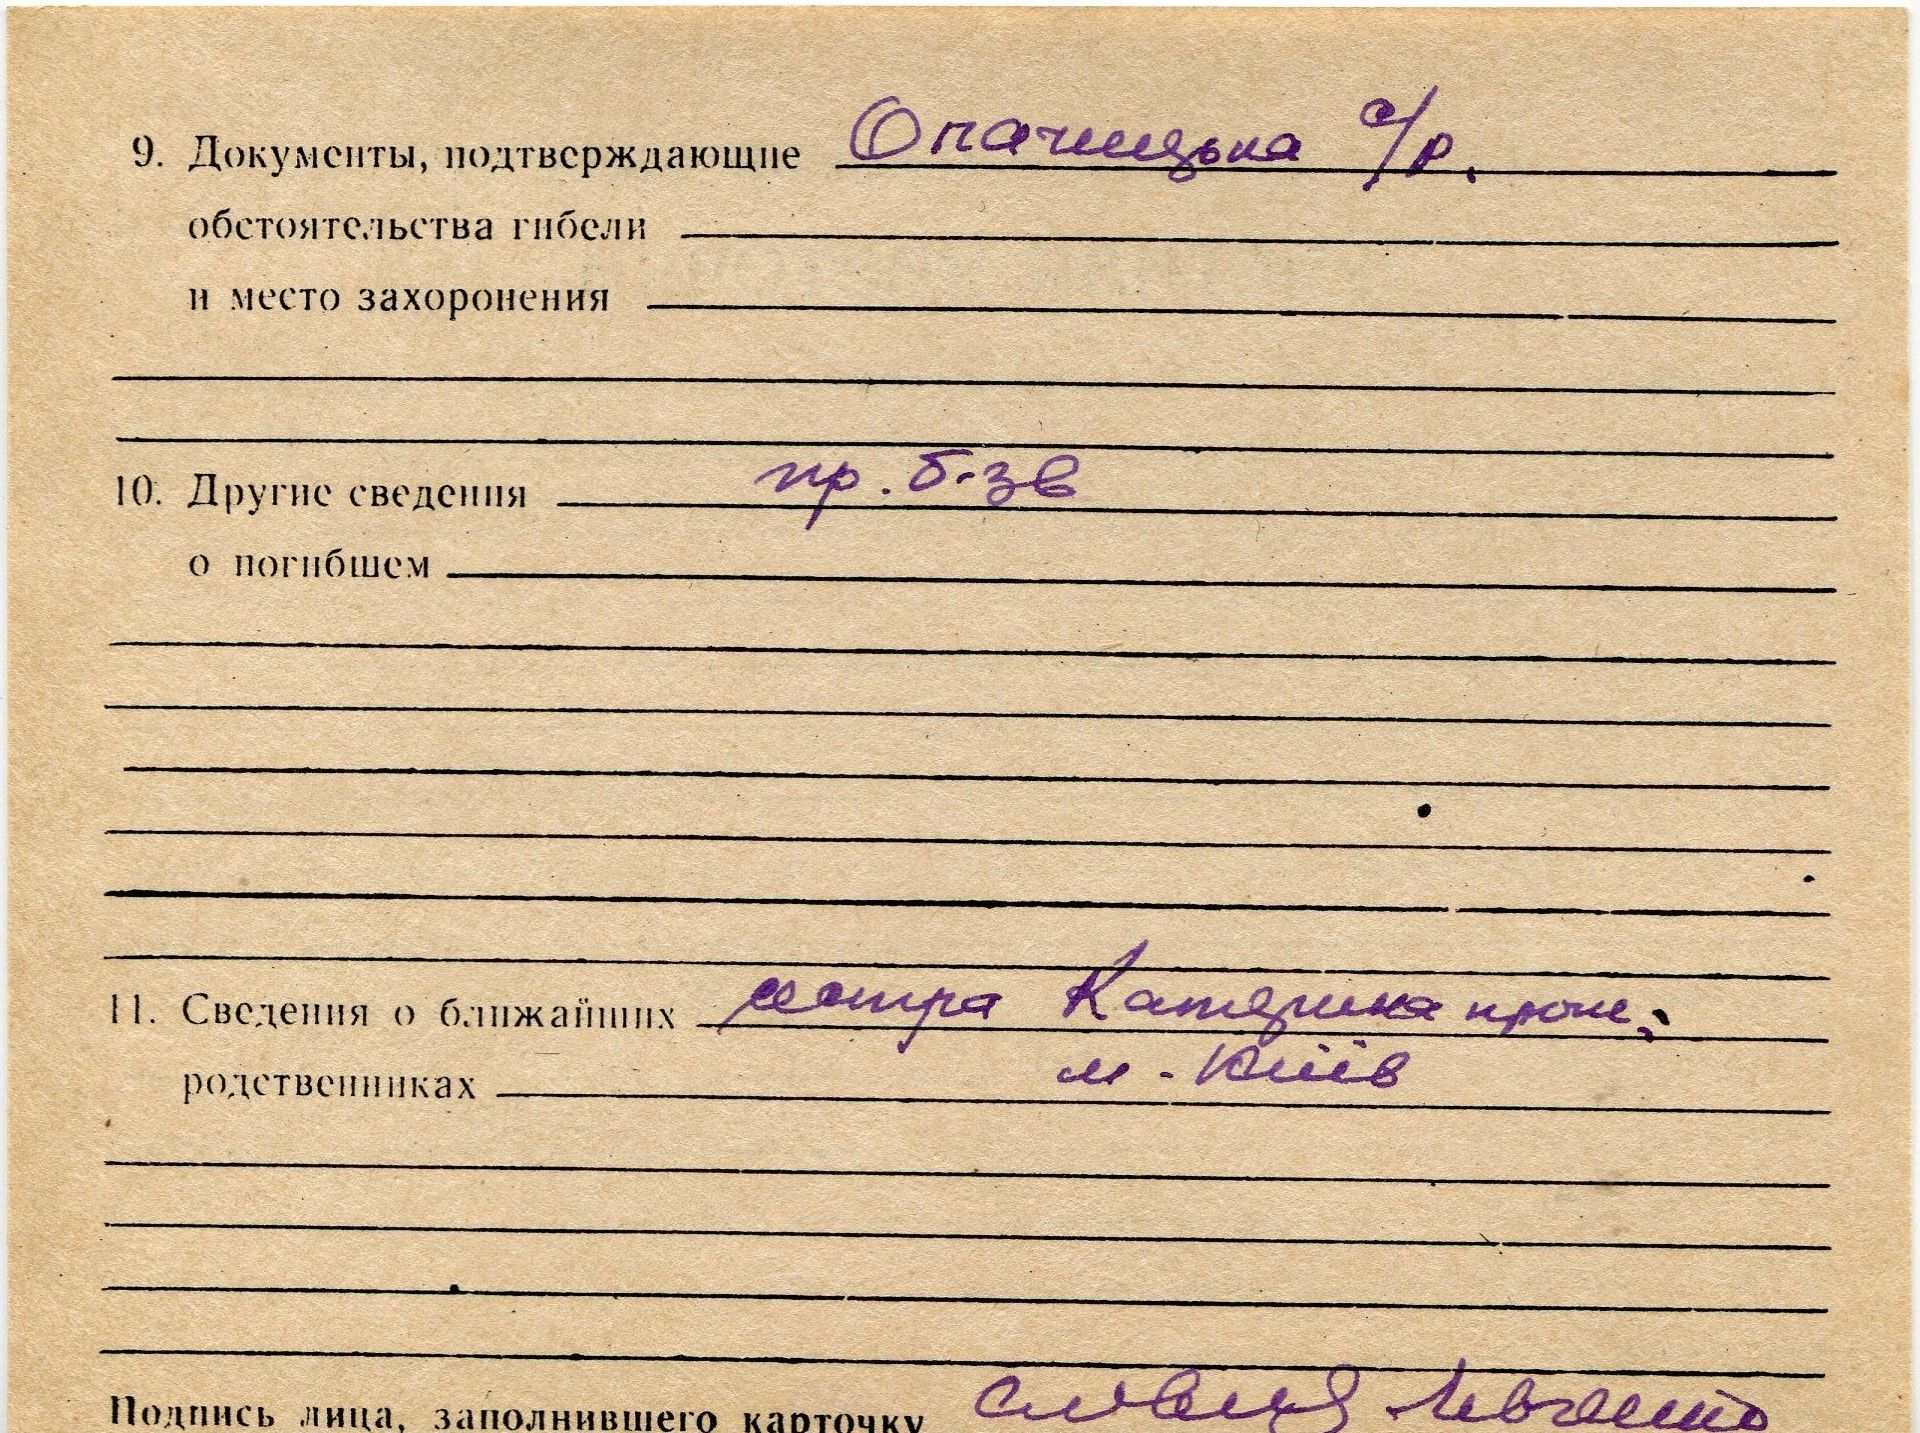 9. Документы, подтверждающие Опачицька с/р.
обстоятельства гибели
и место захоронения
10. Другие сведения пр. б-зв
о погибшем
11. Сведения о ближайших сестра Катерина прож.
родственниках м. Київ
Подпись лица, заполнившего карточку